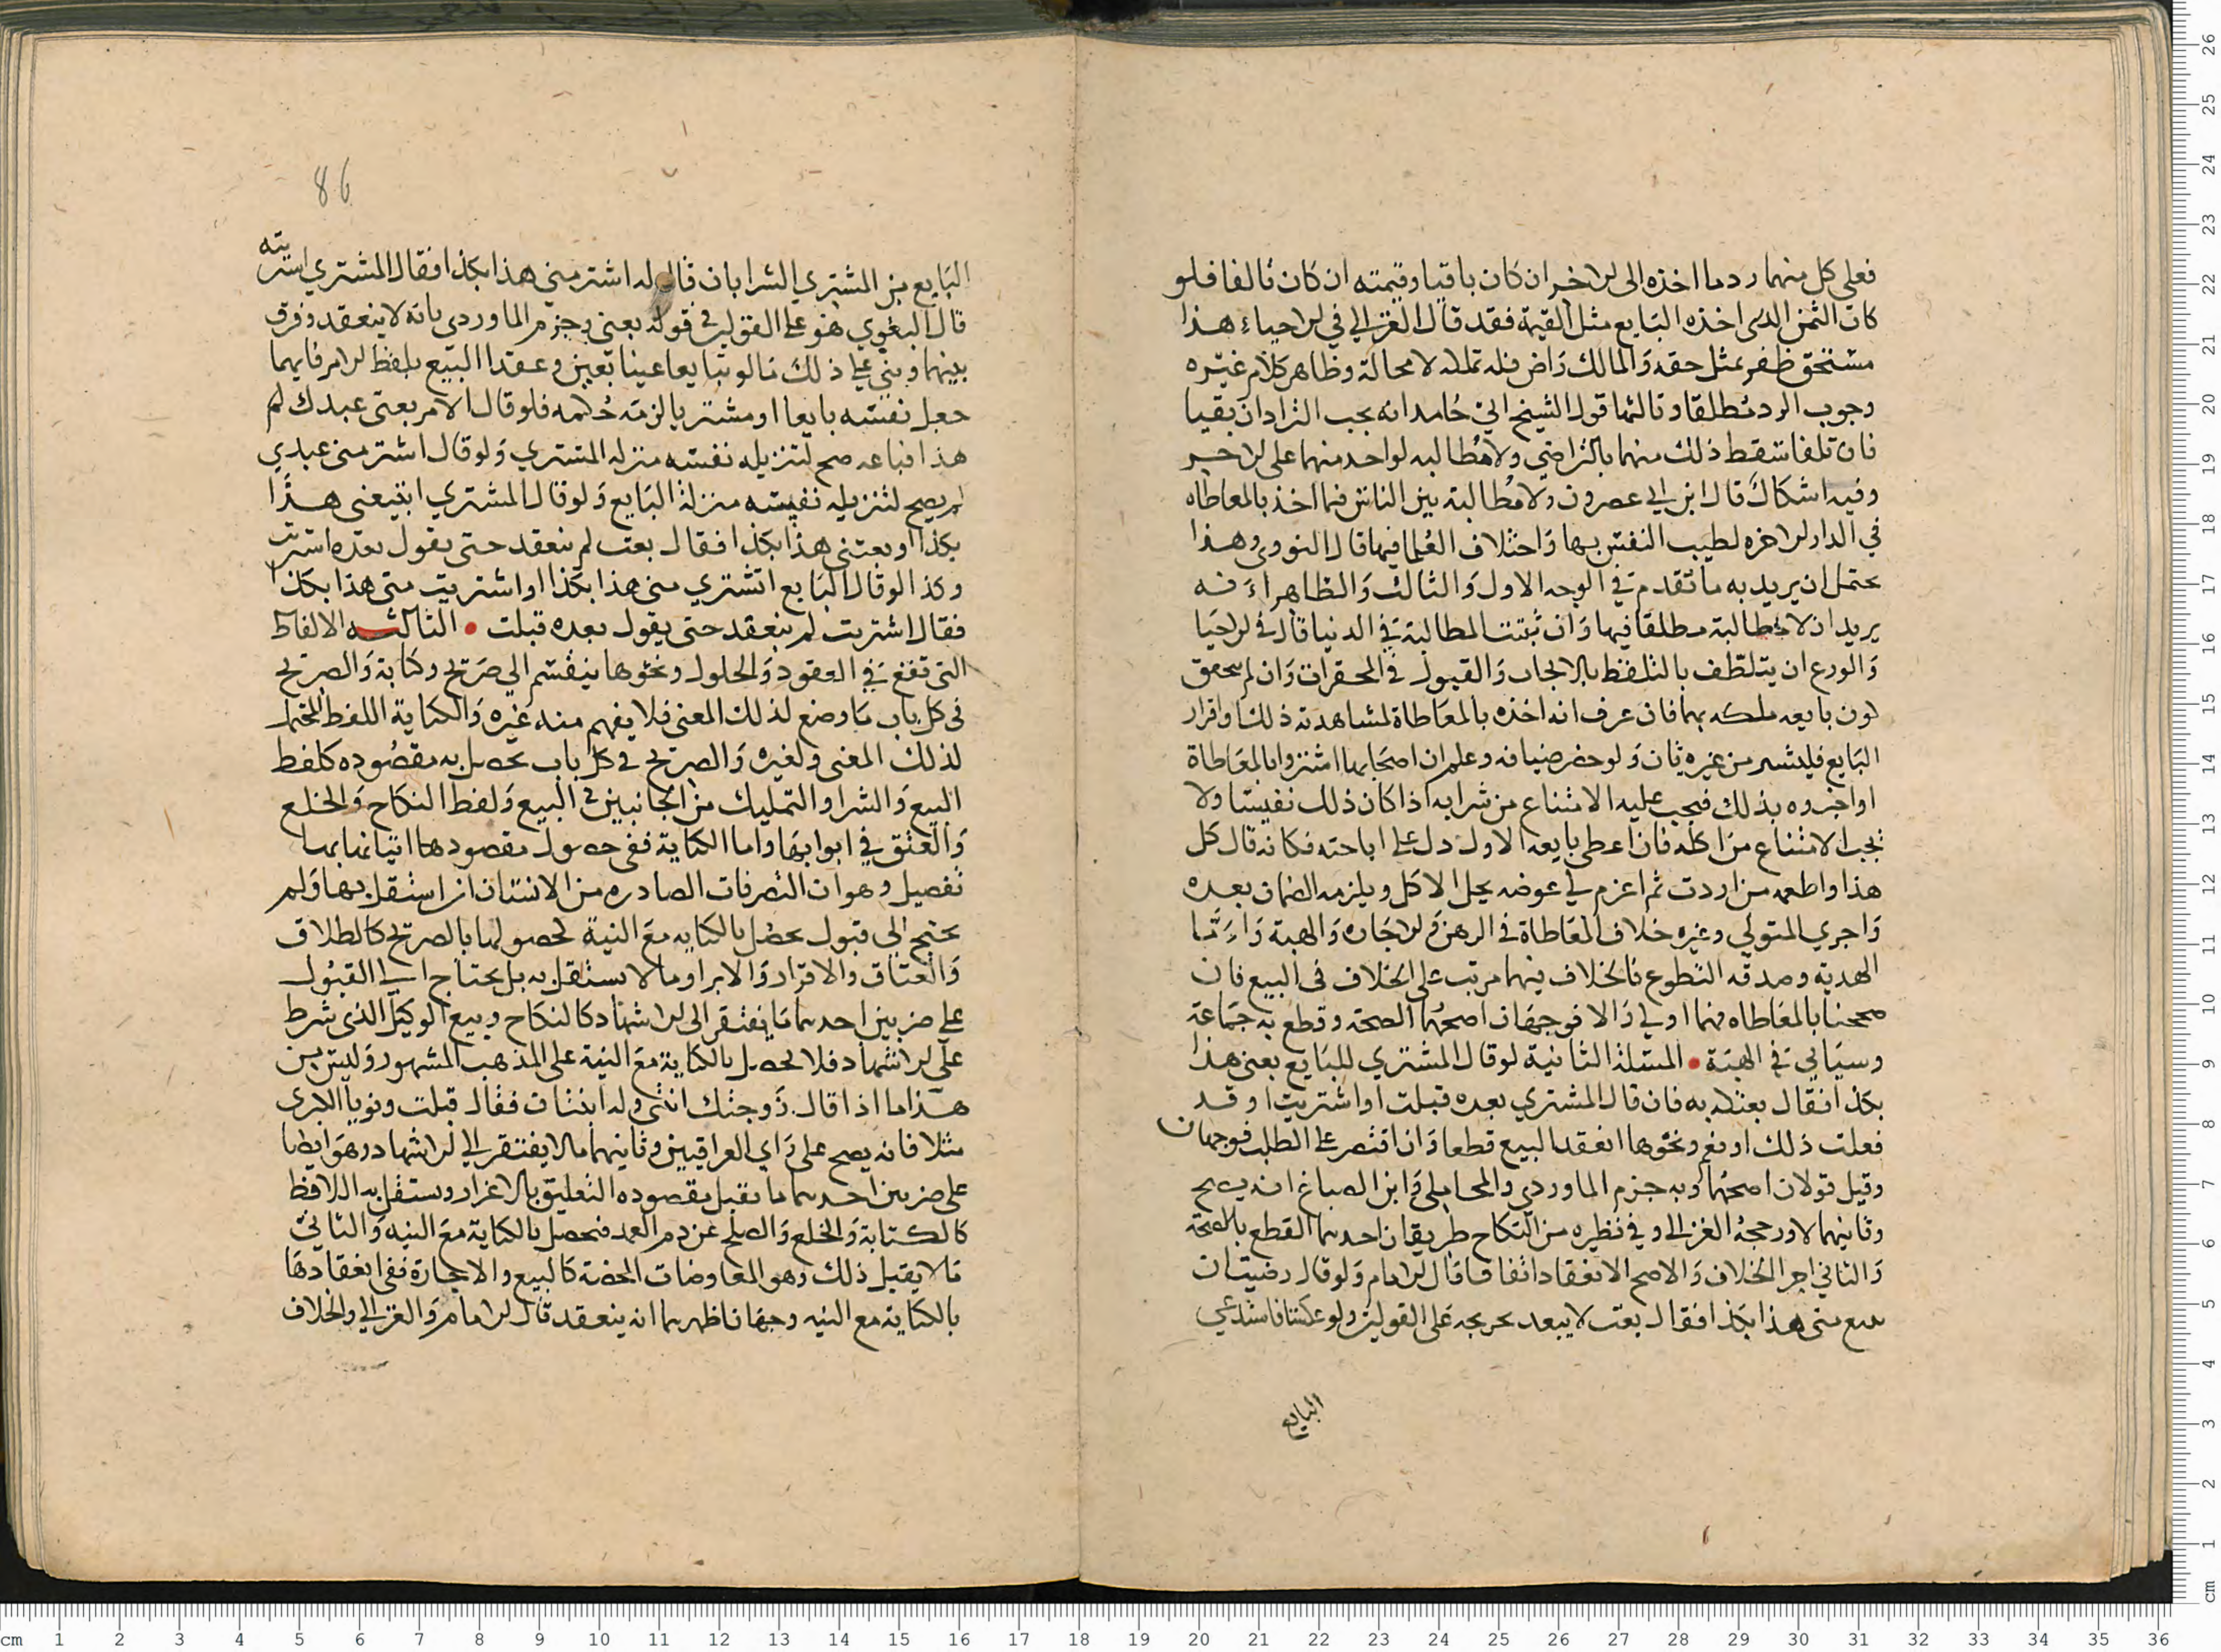 فعلى كل منهما رد ما اخذه الى الاخر ان كان باقيا وقيمته ان كان تالفا فلو
كان الثمن الذى اخذه البايع مثل القيمة فقد قال الغزالي في الاحياء هذا
مستحق ظفر بمثل حقه والمالك راض فله تملكه لا محالة وظاهر كلام غيره
وجوب الرد مطلقا وثالثها قول الشيخ ابي حامد انه يجب التراد ان بقيا
فان تلفا سقط ذلك منهما بالتراضي ولا مطالبه لواحد منهما على الاخر
وفيه اشكال قال ابن ابي عصرون ولا مطالبة بين الناس فيما اخذ بالمعاطاه
في الدار الاخره لطيب النفس بها واختلاف العلما فيها قال النووي وهذا
يحتمل ان يريد به ما تقدم في الوجه الاول والثالث والظاهر انه
يريد ان لا مطالبة مطلقا فيها وان ثبتت المطالبة في الدنيا قال في الاحيا
والورع ان يتلطف بالتلفظ بالايجاب والقبول في المحقرات وان لم يتحقق
لون بايعه ملكه بها فان عرف انه اخذه بالمعاطاة لمشاهدته ذلك او اقرار
البايع فليشتر من غيره فان ولو حضر ضيافه وعلم ان اصحابها اشتروا بالمعاطاة
او اخبروه بذلك فيجب عليه الامتناع من شرابه اذا كان ذلك نفيسا ولا
يجب الامتناع من اكله فان اعطى بايعه الاول دل على اباحته فكانه قال كل
هذا واطعمه من اردت ثم اغرم لي عوضه يحل الاكل ويلزمه الضمان بعده
واجري المتولي وغيره خلاف المعاطاة في الرهن والاجاره والهبة واما
الهديه وصدقه التطوع فالخلاف فيهما مرتب على الخلاف في البيع فان
صححنا بالمعاطاه فهما اولي والا فوجهان اصحهما الصحة وقطع به جماعة
وسياتي في الهبة • المسئلة الثانية لو قال المشتري للبايع بعني هذا
بكذا فقال بعتك به فان قال المشتري بعده قبلت او اشتريت او قد
فعلت ذلك او نعم ونحوها انعقد البيع قطعا وان اقتصر على الطلب فوجهان
وقيل قولان اصحهما وبه جزم الماوردي والمحاملي وابن الصباغ انه يصح
وثانيهما لا ورجحه الغزالي وفي نظيره من النكاح طريقان احدهما القطع بالصحة
والثاني اجرا الخلاف والاصح الانعقاد اتفاقا قال الامام ولو قال رضيت ان
تبيع مني هذا بكذا فقال بعت لا يبعد تخريجه على القولين ولو عكسنا فاستدعي
البايع
86
البايع من المشتري الشرا بان قال له اشتر مني هذا بكذا فقال المشتري اشتريته
قال البغوي هو على القولين في قوله بعني وجزم الماوردي بانه لا ينعقد وفرق
بينهما وبني على ذلك ما لو تبايعا عينا بعين وعقدا البيع بلفظ الامر فايهما
جعل نفسه بايعا او مشتريا لزمه حكمه فلو قال الامر بعتى عبدك لم
هذا فباعه صح لتنزيله نفسه منزله المشتري ولو قال اشتر منى عبدي
لم يصح لتنزيله نفسه منزلة البايع ولو قال المشتري ابتيعنى هذا
بكذا او بعتنى هذا بكذا فقال بعت لم ينعقد حتى يقول بعده اشتريت
وكذا لو قال البايع اتشتري منى هذا بكذا او اشتريت منى هذا بكذا
فقال اشتريت لم ينعقد حتى يقول بعده قبلت • الثالثه الالفاظ
التى تقع في العقود والحلول ونحوها ينقسم الي صريح وكناية والصريح
فى كل باب ما وضع لذلك المعنى فلا يفهم منه غيره والكناية اللفظ المحتمل
لذلك المعنى ولغيره والصريح في كل باب يحصل به مقصوده كلفظ
البيع والشرا والتمليك من الجانبين في البيع ولفظ النكاح والخلع
والعتق في ابوابها واما الكناية ففي حصول مقصودها اتيانها بها
تفصيل وهو ان التصرفات الصادره من الانسان ان استقل بها ولم
يحتج الي قبول يحصل بالكنايه مع النية لحصولها بالصريح كالطلاق
والعتاق والاقرار والابرا وما لا يستقل به بل يحتاج الي القبول
على ضربين احدهما ما يفتقر الى الاشهاد كالنكاح وبيع الوكيل الذى شرط
على الاشهاد فلا يحصل بالكناية مع النية على المذهب المشهور وليس من
هذا ما اذا قال زوجتك ابنتى وله ابنتان فقال قبلت ونويا الكبرى
مثلا فانه يصح على راي العراقيين وثانيهما ما لا يفتقر الي الاشهاد وهو ايضا
على ضربين احدهما ما يقبل مقصوده التعليق بالاغرار ويستقل به اللافظ
كالكتابة والخلع والصلح عن دم العمد فيحصل بالكناية مع النيه والثاني
ما لا يقبل ذلك وهو المعاوضات المحضة كالبيع والاجارة ففى انعقادها
بالكناية مع النيه وجهان اظهرهما انه ينعقد قال الامام والغزالي والخلاف